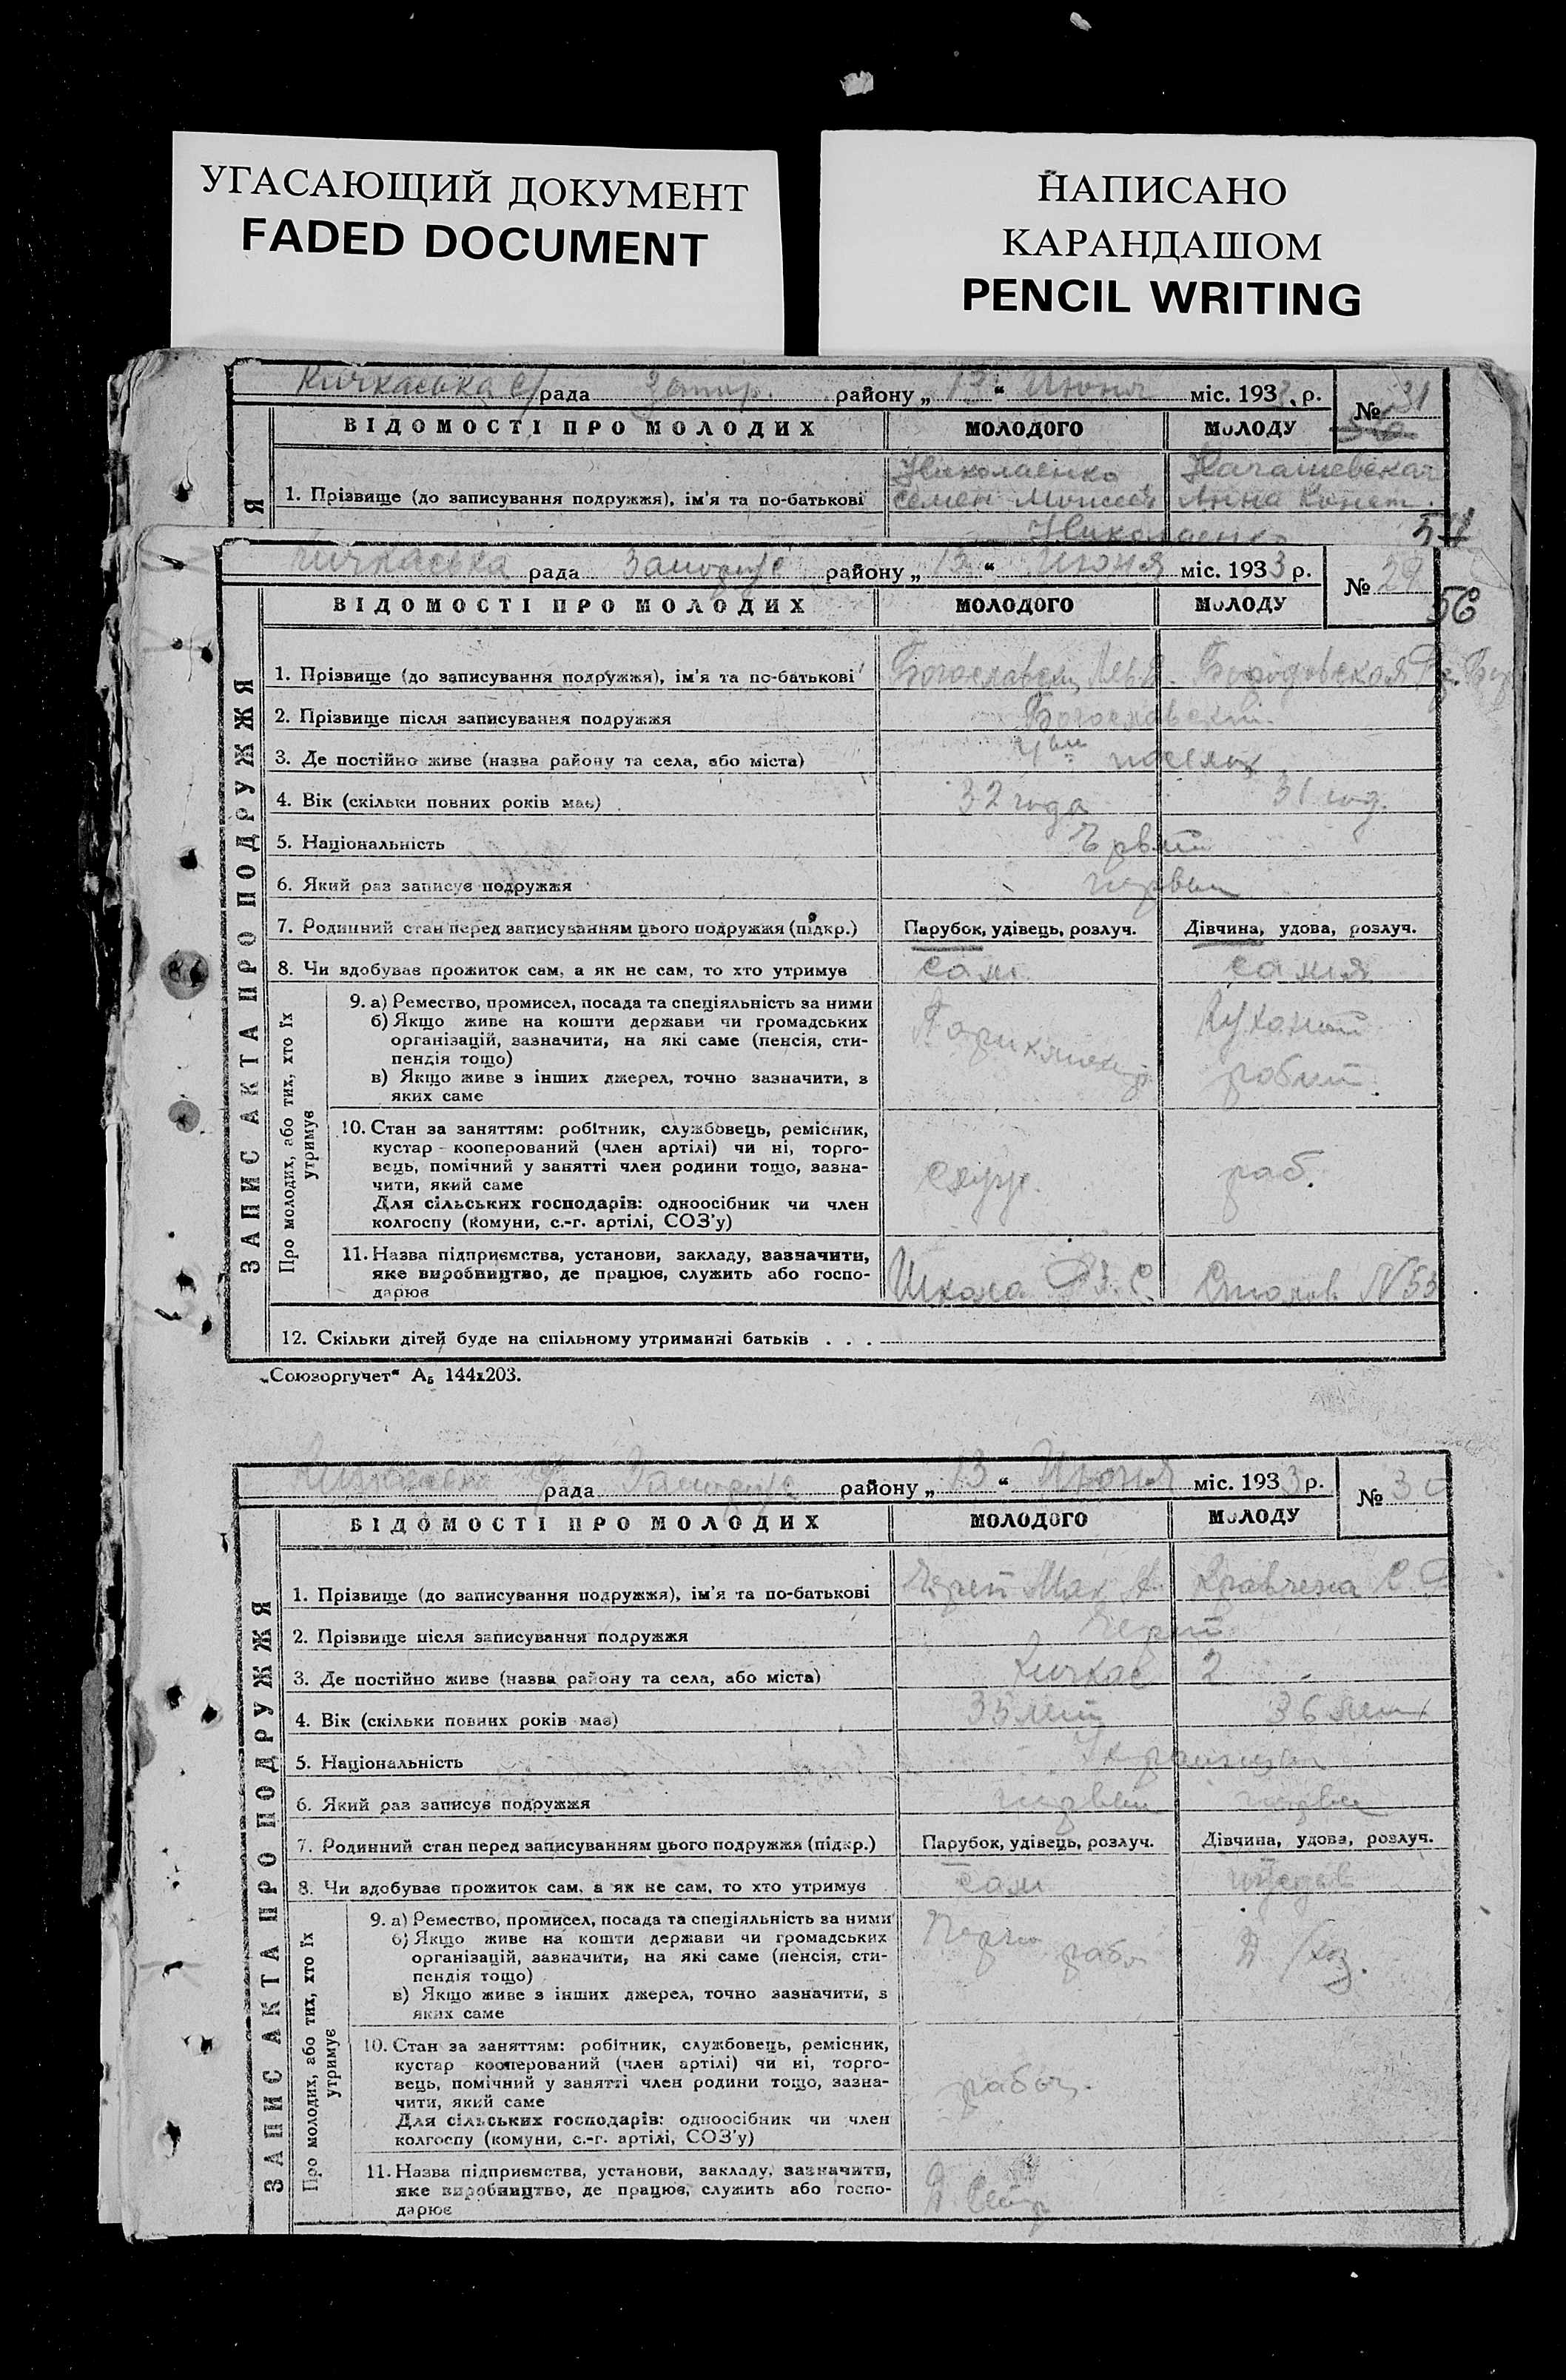 УГАСАЮЩИЙ ДОКУМЕНТ
FADED DOCUMENT
НАПИСАНО
КАРАНДАШОМ
PENCIL WRITING
Кичкаська с/рада Запор. району „13“ Июня міс. 1933 р.
№ 31
ВІДОМОСТІ ПРО МОЛОДИХ МОЛОДОГО МОЛОДУ
Николаенко
Семен Моисеев
Анна
1. Прізвище (до записування подружжя), ім’я та по-батькові
Николаенко
54
Кичкаська рада Запоріж району „13“ Июня міс. 1933 р.
№ 29
56
ЗАПИС АКТА ПРО ПОДРУЖЖЯ
ВІДОМОСТІ ПРО МОЛОДИХ МОЛОДОГО МОЛОДУ
1. Прізвище (до записування подружжя), ім’я та по-батькові
2. Прізвище після записування подружжя Богославский
3. Де постійно живе (назва району та села, або міста)
4. Вік (скільки повних років має) 32 года 31 год.
5. Національність
6. Який раз записує подружжя первый
7. Родинний стан перед записуванням цього подружжя (підкр.) Парубок, удівець, розлуч. Дівчина, удова, розлуч.
8. Чи здобуває прожиток сам, а як не сам, то хто утримує сам сама
Про молодих, або тих, хто їх
утримує
9. а) Ремество, промисел, посада та спеціяльність за ними
б) Якщо живе на кошти держави чи громадських
організацій, зазначити, на які саме (пенсія, сти-
пендія тощо)
в) Якщо живе з інших джерел, точно зазначити, з
яких саме
Парикмахер
Кухонный
10. Стан за заняттям: робітник, службовець, ремісник,
кустар - кооперований (член артілі) чи ні, торго-
вець, помічний у занятті член родини тощо, зазна-
чити, який саме
Для сільських господарів: одноосібник чи член
колгоспу (комуни, с.-г. артілі, СОЗ’у)
служ.
раб.
11. Назва підприємства, установи, закладу, зазначити,
яке виробництво, де працює, служить або госпо-
дарює
Школа
Столов. N 53
12. Скільки дітей буде на спільному утриманні батьків . . .
„Союзоргучет“ А₅ 144х203.
рада Запоріж району „13“ Июня міс. 1933 р.
№ 30
ЗАПИС АКТА ПРО ПОДРУЖЖЯ
ВІДОМОСТІ ПРО МОЛОДИХ МОЛОДОГО МОЛОДУ
1. Прізвище (до записування подружжя), ім’я та по-батькові
2. Прізвище після записування подружжя
3. Де постійно живе (назва району та села, або міста) Кичкас 2
4. Вік (скільки повних років має) 35 лет 36 лет
5. Національність
6. Який раз записує подружжя первый первы
7. Родинний стан перед записуванням цього подружжя (підкр.) Парубок, удівець, розлуч. Дівчина, удова, розлуч.
8. Чи здобуває прожиток сам, а як не сам, то хто утримує сам
Про молодих, або тих, хто їх
утримує
9. а) Ремество, промисел, посада та спеціяльність за ними
б) Якщо живе на кошти держави чи громадських
організацій, зазначити, на які саме (пенсія, сти-
пендія тощо)
в) Якщо живе з інших джерел, точно зазначити, з
яких саме
Д/хоз.
10. Стан за заняттям: робітник, службовець, ремісник,
кустар кооперований (член артілі) чи ні, торго-
вець, помічний у занятті член родини тощо, зазна-
чити, який саме
Для сільських господарів: одноосібник чи член
колгоспу (комуни, с.-г. артілі, СОЗ’у)
рабоч.
11. Назва підприємства, установи, закладу, зазначити,
яке виробництво, де працює, служить або госпо-
дарює